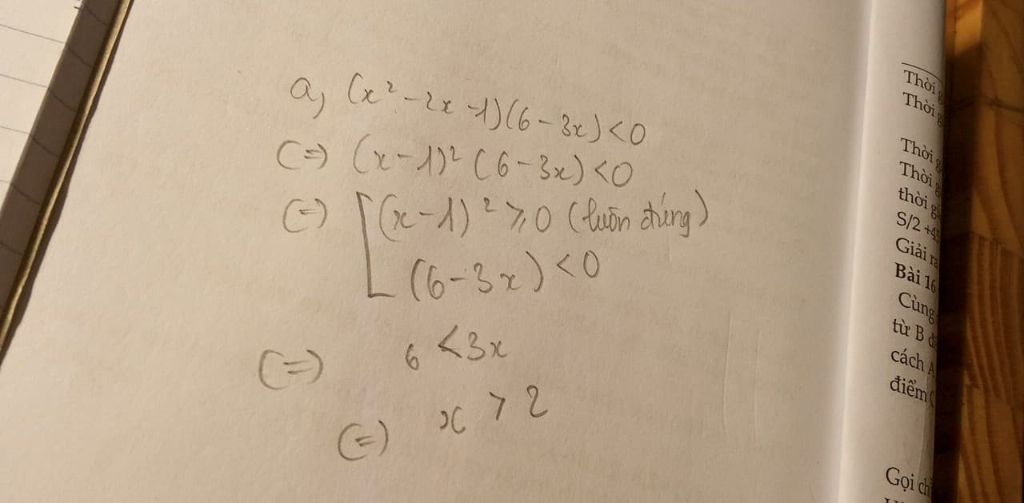 a, (x² - 2x - 1)(6 - 3x) < 0
(=) (x - 1)² (6 - 3x) < 0
(=) [ (x - 1)² ≥ 0 (luôn đúng)
(6 - 3x) < 0
(=) 6 < 3x
(=) x > 2
Thời
Thời
Thời
Thời
thời
S/2 +4
Giải
Bài 16
Cùng
từ B
cách
điểm
Gọi